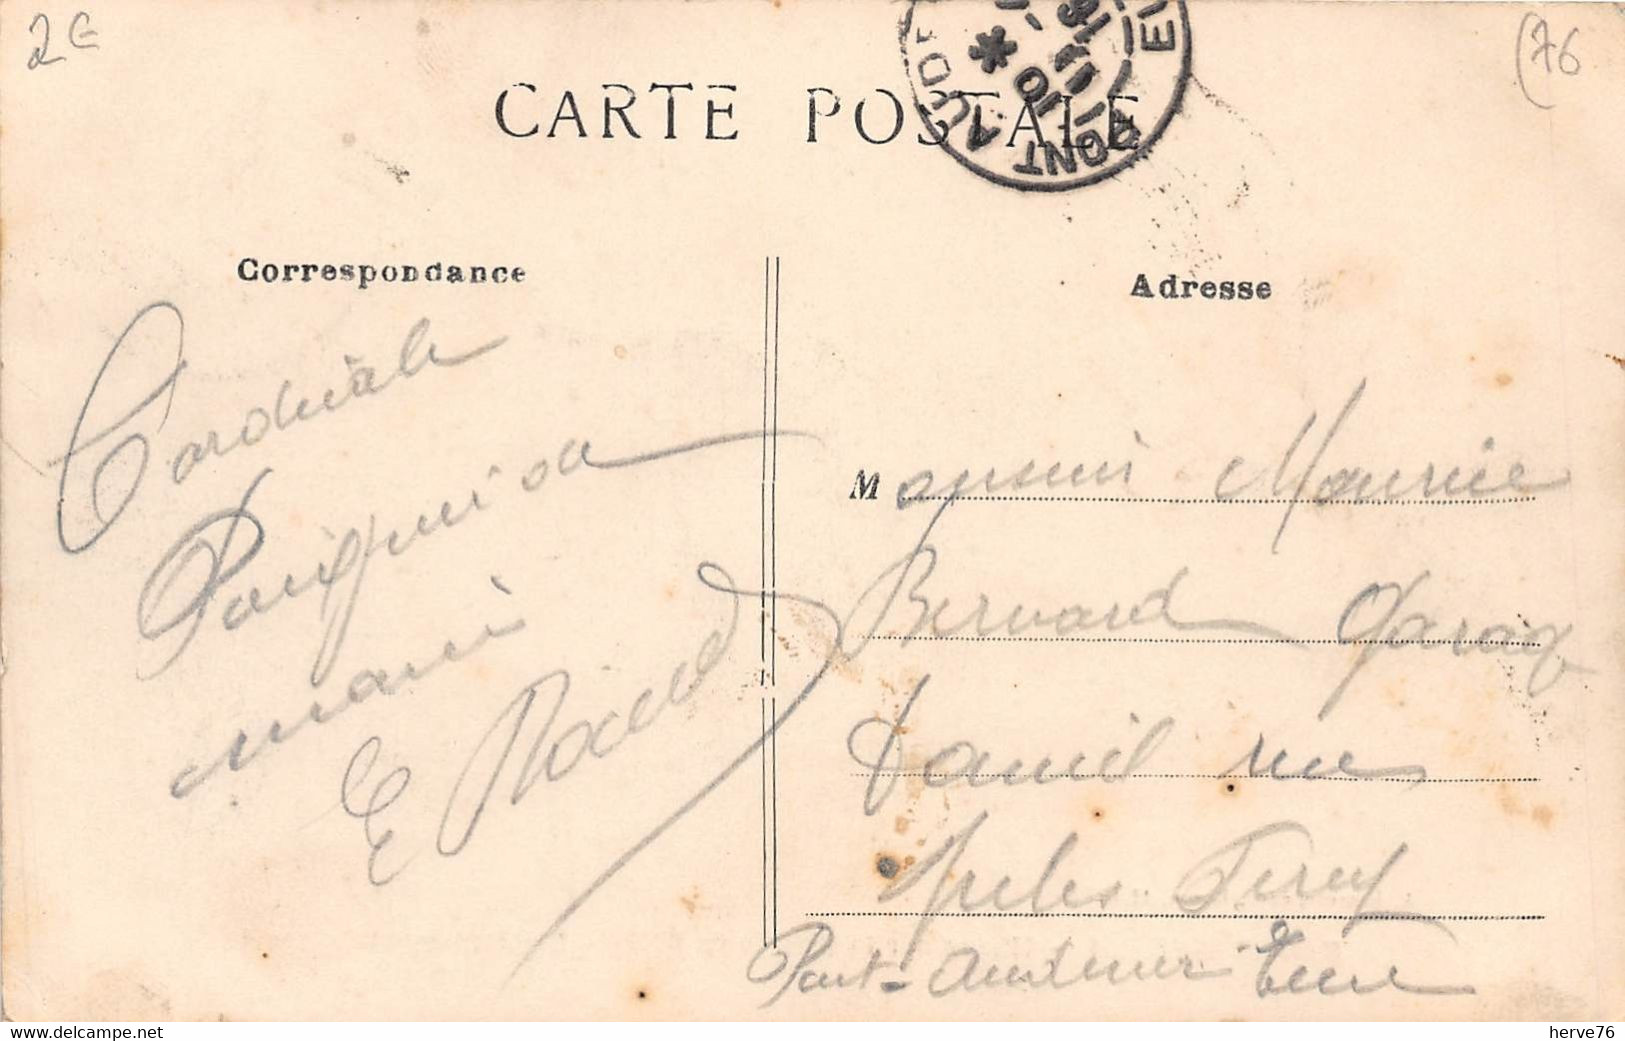 2€
(76
CARTE POSTALE
PONT AUDE
10
Correspondance
Adresse
Cordiale
Poignée de
main
E
Monsieur Maurice
Bernard Garage
Daniel rue
Jules Ferry
Pont-Audemer Eure
herve76